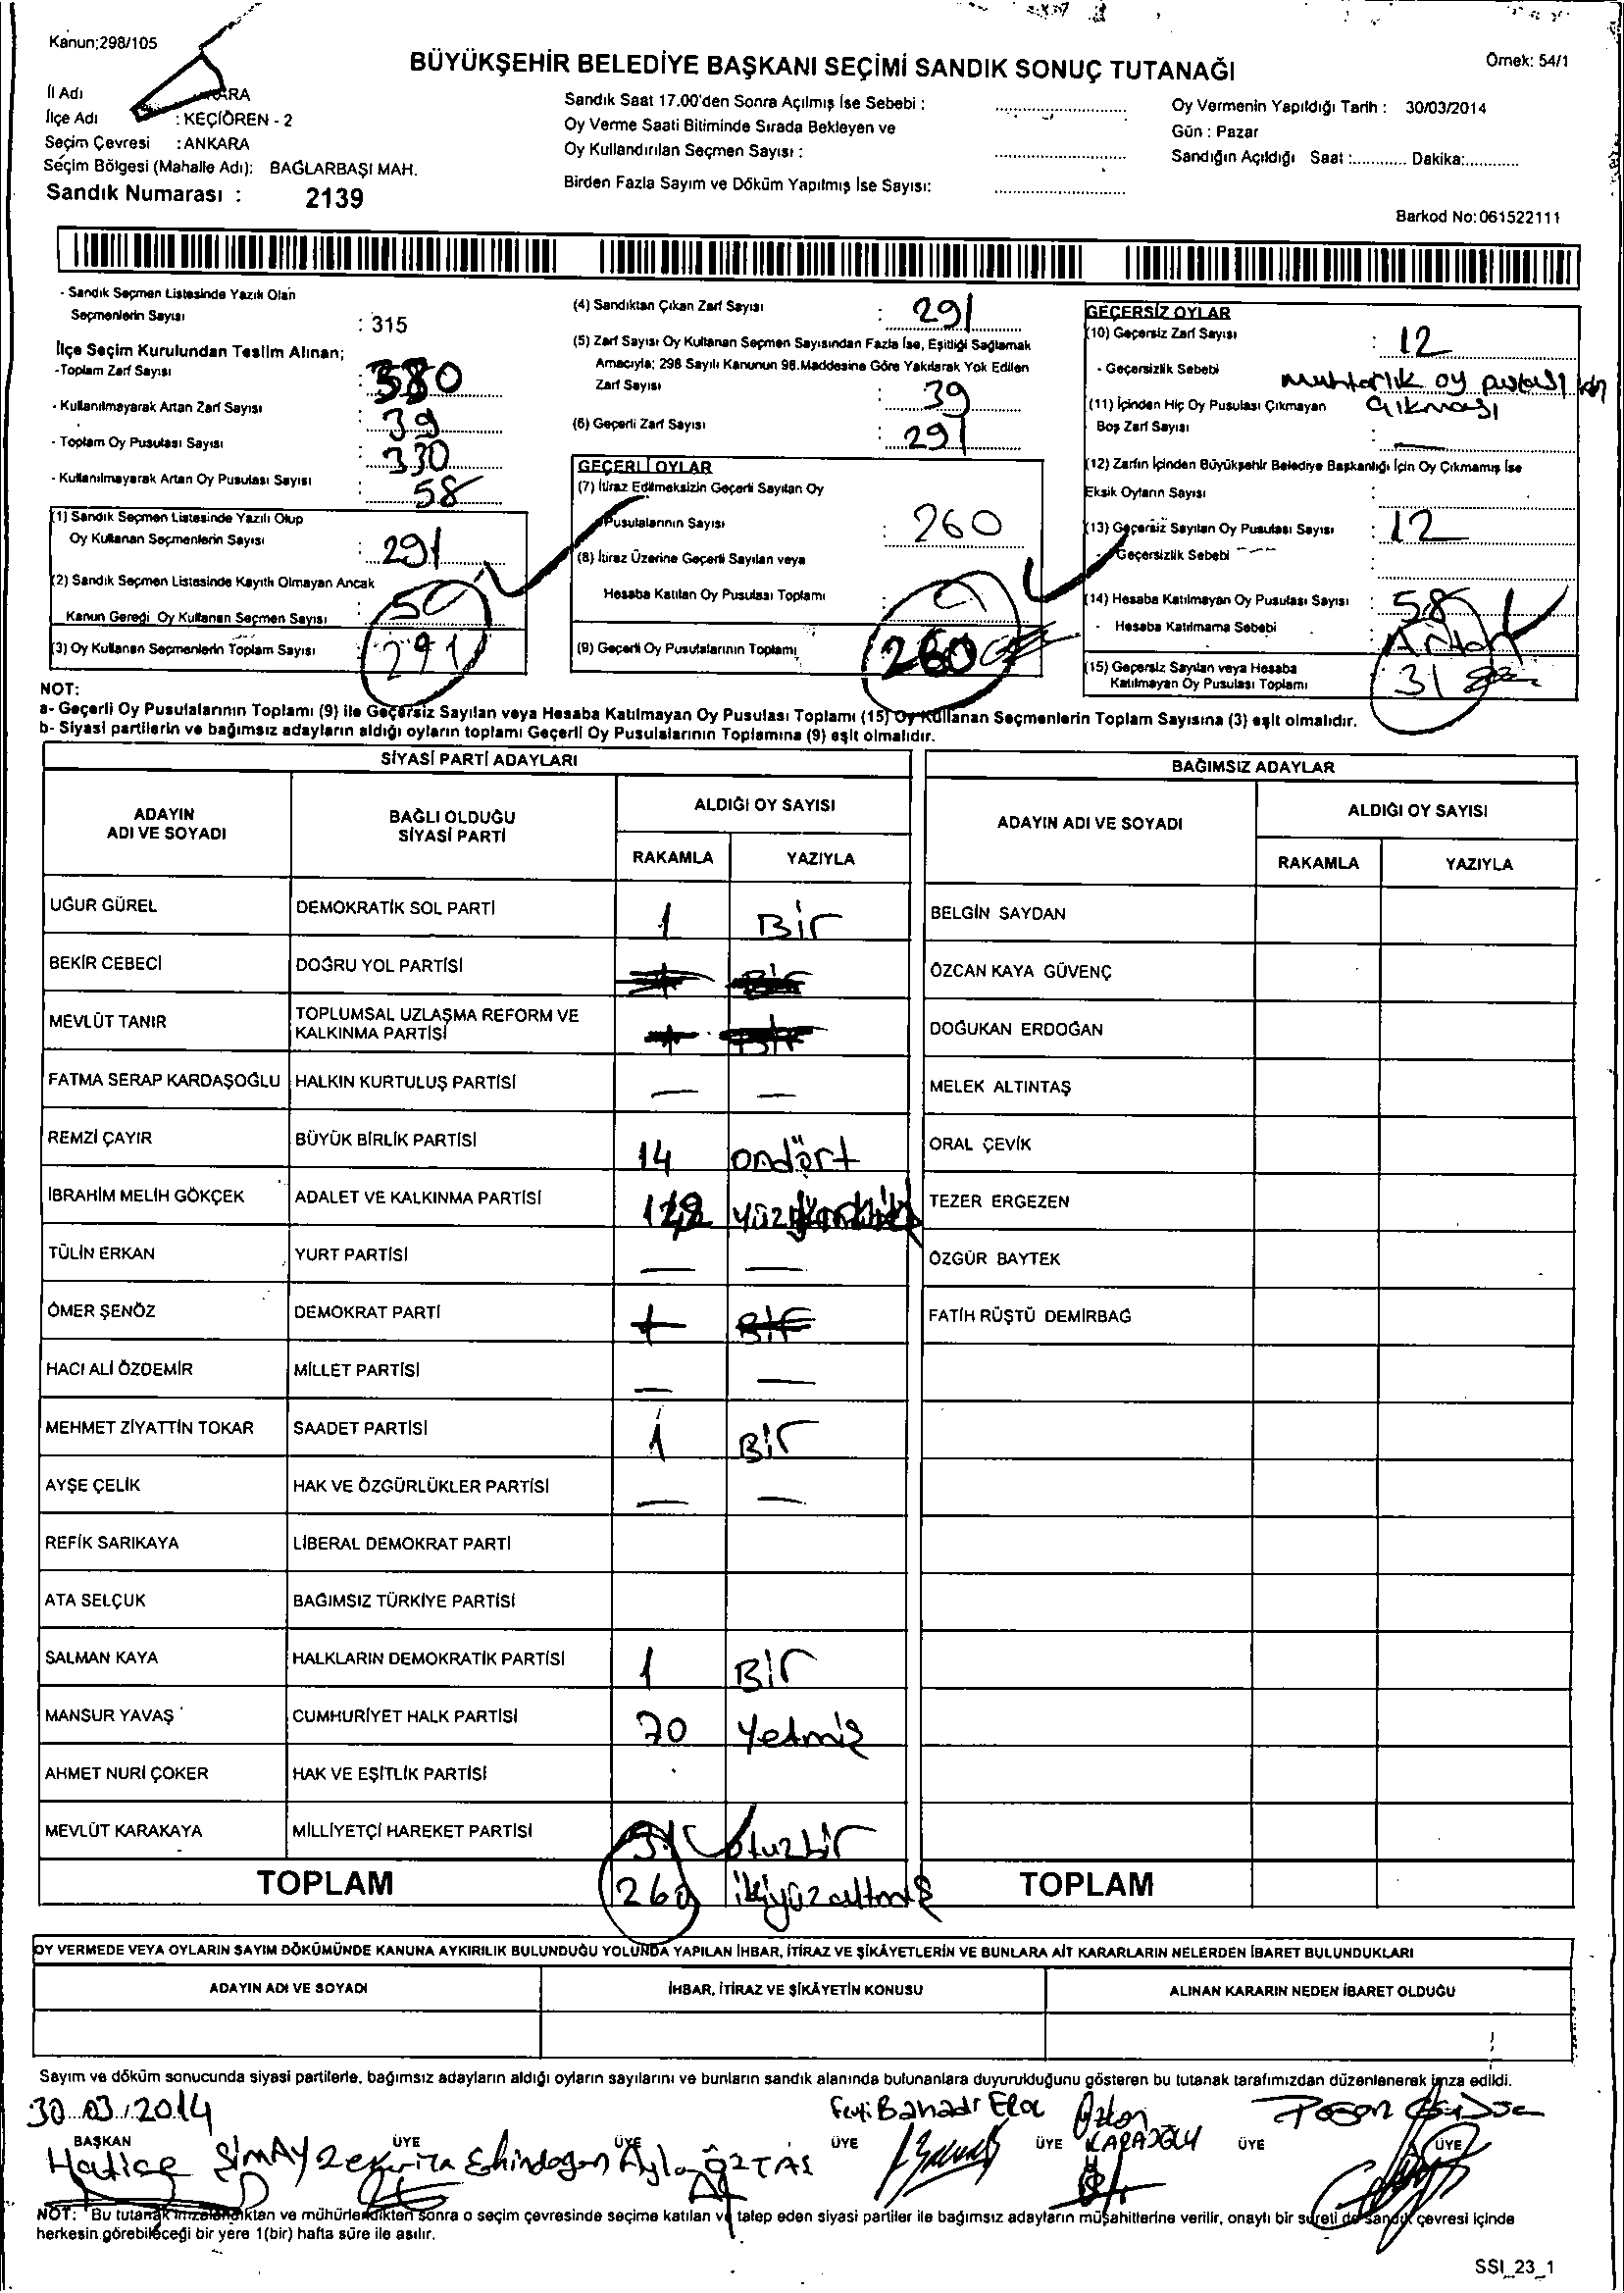 Kanun:298/105
BÜYÜKŞEHİR BELEDİYE BAŞKANI SEÇİMİ SANDIK SONUÇ TUTANAĞI
Örnek: 54/1
İl Adı
İlçe Adı : KEÇİÖREN - 2
Seçim Çevresi : ANKARA
Seçim Bölgesi (Mahalle Adı): BAĞLARBAŞI MAH.
Sandık Numarası : 2139
Sandık Saat 17.00'den Sonra Açılmış İse Sebebi :
Oy Verme Saati Bitiminde Sırada Bekleyen ve
Oy Kullandırılan Seçmen Sayısı :
Birden Fazla Sayım ve Döküm Yapılmış İse Sayısı:
Oy Vermenin Yapıldığı Tarih : 30/03/2014
Gün : Pazar
Sandığın Açıldığı Saat :............ Dakika:............
Barkod No:061522111
- Sandık Seçmen Listesinde Yazılı Olan
Seçmenlerin Sayısı : 315
İlçe Seçim Kurulundan Teslim Alınan;
-Toplam Zarf Sayısı : 380
- Kullanılmayarak Artan Zarf Sayısı : 39
- Toplam Oy Pusulası Sayısı : 330
- Kullanılmayarak Artan Oy Pusulası Sayısı : 58
(1) Sandık Seçmen Listesinde Yazılı Olup
Oy Kullanan Seçmenlerin Sayısı : 291
(2) Sandık Seçmen Listesinde Kayıtlı Olmayan Ancak
Kanun Gereği Oy Kullanan Seçmen Sayısı :
(3) Oy Kullanan Seçmenlerin Toplam Sayısı : 291
(4) Sandıktan Çıkan Zarf Sayısı : 291
(5) Zarf Sayısı Oy Kullanan Seçmen Sayısından Fazla İse, Eşitliği Sağlamak
Amacıyla; 298 Sayılı Kanunun 98.Maddesine Göre Yakılarak Yok Edilen
Zarf Sayısı : 39
(6) Geçerli Zarf Sayısı : 291
GEÇERLİ OYLAR
(7) İtiraz Edilmeksizin Geçerli Sayılan Oy
Pusulalarının Sayısı : 260
(8) İtiraz Üzerine Geçerli Sayılan veya
Hesaba Katılan Oy Pusulası Toplamı :
(9) Geçerli Oy Pusulalarının Toplamı 260
GEÇERSİZ OYLAR
(10) Geçersiz Zarf Sayısı : 12
- Geçersizlik Sebebi muhtarlık oy pusulası
çıkması
(11) İçinden Hiç Oy Pusulası Çıkmayan
Boş Zarf Sayısı : —
(12) Zarfın İçinden Büyükşehir Belediye Başkanlığı İçin Oy Çıkmamış İse
Eksik Oyların Sayısı :
(13) Geçersiz Sayılan Oy Pusulası Sayısı : 12
- Geçersizlik Sebebi
(14) Hesaba Katılmayan Oy Pusulası Sayısı : 58
- Hesaba Katılmama Sebebi : Artan
(15) Geçersiz Sayılan veya Hesaba
Katılmayan Oy Pusulası Toplamı : 31
NOT:
a- Geçerli Oy Pusulalarının Toplamı (9) ile Geçersiz Sayılan veya Hesaba Katılmayan Oy Pusulası Toplamı (15) Oy Kullanan Seçmenlerin Toplam Sayısına (3) eşit olmalıdır.
b- Siyasi partilerin ve bağımsız adayların aldığı oyların toplamı Geçerli Oy Pusulalarının Toplamına (9) eşit olmalıdır.
SİYASİ PARTİ ADAYLARI
ADAYIN ADI VE SOYADI
BAĞLI OLDUĞU SİYASİ PARTİ
ALDIĞI OY SAYISI
RAKAMLA YAZIYLA
UĞUR GÜREL DEMOKRATİK SOL PARTİ 1 Bir
BEKİR CEBECİ DOĞRU YOL PARTİSİ
MEVLÜT TANIR TOPLUMSAL UZLAŞMA REFORM VE
KALKINMA PARTİSİ
FATMA SERAP KARDAŞOĞLU HALKIN KURTULUŞ PARTİSİ — —
REMZİ ÇAYIR BÜYÜK BİRLİK PARTİSİ 14 ondört
İBRAHİM MELİH GÖKÇEK ADALET VE KALKINMA PARTİSİ
TÜLİN ERKAN YURT PARTİSİ — —
ÖMER ŞENÖZ DEMOKRAT PARTİ 1 Bir
HACI ALİ ÖZDEMİR MİLLET PARTİSİ — —
MEHMET ZİYATTİN TOKAR SAADET PARTİSİ 1 Bir
AYŞE ÇELİK HAK VE ÖZGÜRLÜKLER PARTİSİ — —
REFİK SARIKAYA LİBERAL DEMOKRAT PARTİ
ATA SELÇUK BAĞIMSIZ TÜRKİYE PARTİSİ
SALMAN KAYA HALKLARIN DEMOKRATİK PARTİSİ 1 Bir
MANSUR YAVAŞ CUMHURİYET HALK PARTİSİ 70 Yetmiş
AHMET NURİ ÇOKER HAK VE EŞİTLİK PARTİSİ
MEVLÜT KARAKAYA MİLLİYETÇİ HAREKET PARTİSİ 31 otuzbir
TOPLAM 260 ikiyüzaltmış
BAĞIMSIZ ADAYLAR
ADAYIN ADI VE SOYADI
ALDIĞI OY SAYISI
RAKAMLA YAZIYLA
BELGİN SAYDAN
ÖZCAN KAYA GÜVENÇ
DOĞUKAN ERDOĞAN
MELEK ALTINTAŞ
ORAL ÇEVİK
TEZER ERGEZEN
ÖZGÜR BAYTEK
FATİH RÜŞTÜ DEMİRBAĞ
TOPLAM
OY VERMEDE VEYA OYLARIN SAYIM DÖKÜMÜNDE KANUNA AYKIRILIK BULUNDUĞU YOLUNDA YAPILAN İHBAR, İTİRAZ VE ŞİKÂYETLERİN VE BUNLARA AİT KARARLARIN NELERDEN İBARET BULUNDUKLARI
ADAYIN ADI VE SOYADI
İHBAR, İTİRAZ VE ŞİKÂYETİN KONUSU
ALINAN KARARIN NEDEN İBARET OLDUĞU
Sayım ve döküm sonucunda siyasi partilerle, bağımsız adayların aldığı oyların sayılarını ve bunların sandık alanında bulunanlara duyurukduğunu gösteren bu tutanak tarafımızdan düzenlenerek imza edildi.
30.03.2014
BAŞKAN ÜYE ÜYE ÜYE ÜYE ÜYE ÜYE
Hatice ŞİMAY
KARAOĞLU
NOT: Bu tutanak imzalandıktan ve mühürlendikten sonra o seçim çevresinde seçime katılan ve talep eden siyasi partiler ile bağımsız adayların müşahitlerine verilir, onaylı bir sureti de sandık çevresi içinde
herkesin görebileceği bir yere 1(bir) hafta süre ile asılır.
SSI_23_1